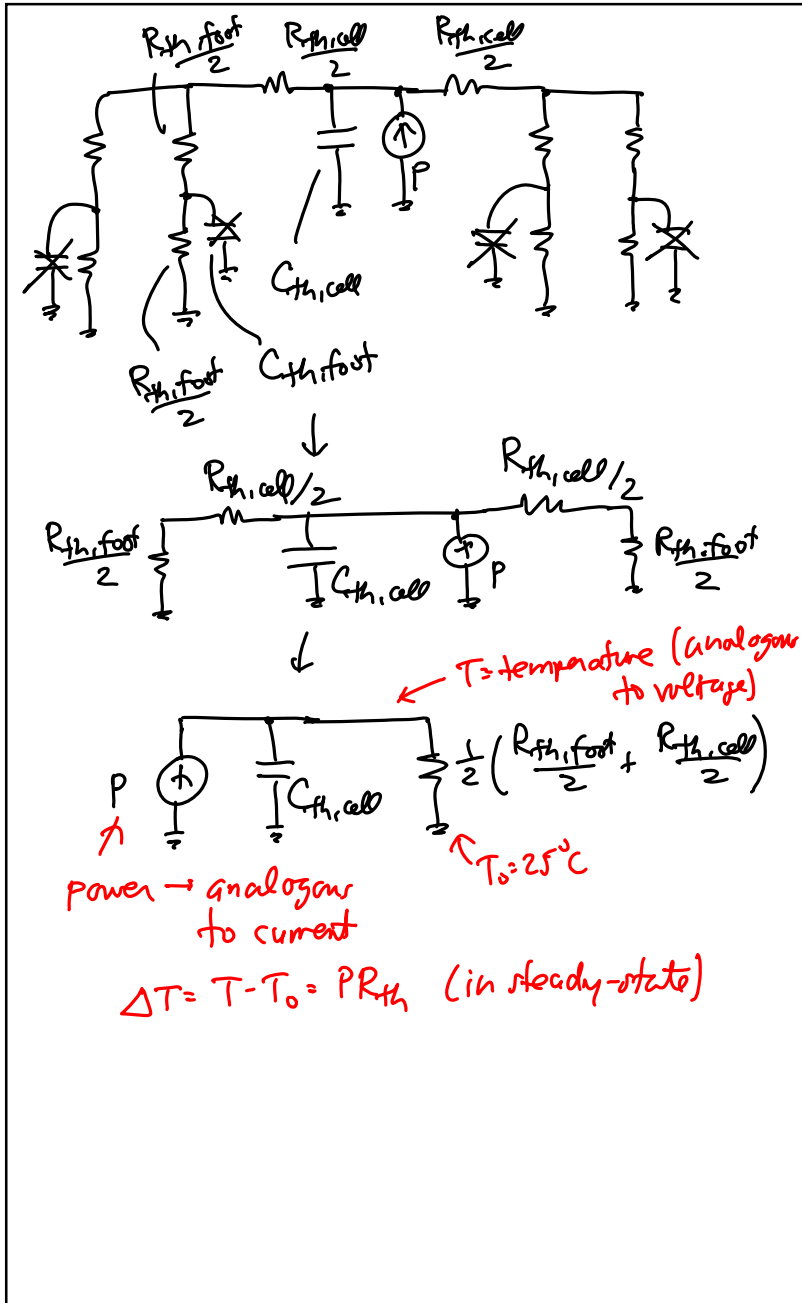 R_th,foot/2 R_th,cell/2 R_th,cell/2
P
C_th,cell
R_th,foot/2 C_th,foot
R_th,cell/2 R_th,cell/2
R_th,foot/2 C_th,cell P R_th,foot/2
T=temperature (analogous
to voltage)
P C_th,cell 1/2 (R_th,foot/2 + R_th,cell/2)
T₀=25°C
power → analogous
to current
ΔT = T-T₀ = PR_th (in steady-state)